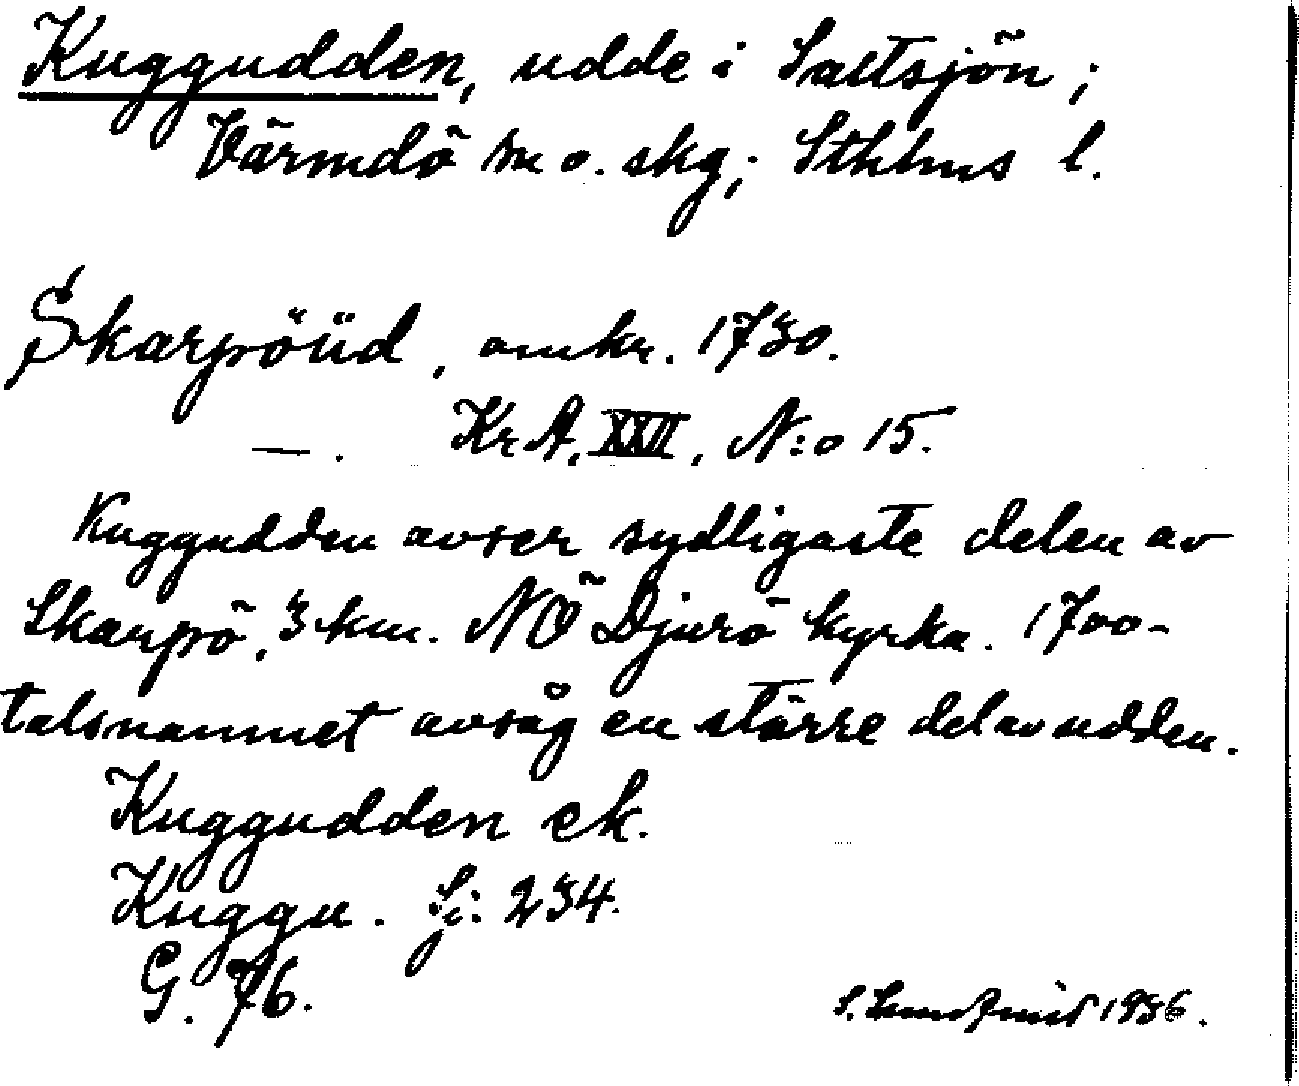 Kuggudden, udde i Saltsjön;
Värmdö sn o. skg; Sthlms l.
Skarpöüd, omkr. 1730.
—. KrA, XXII, N:o 15.
Kuggudden avser sydligaste delen av
Skarpö, 3 km. NÖ Djurö kyrka. 1700-
talsnamnet avsåg en större del av udden.
Kuggudden ek.
Kuggu. Sj: 234.
G. 76.
S. 1936.